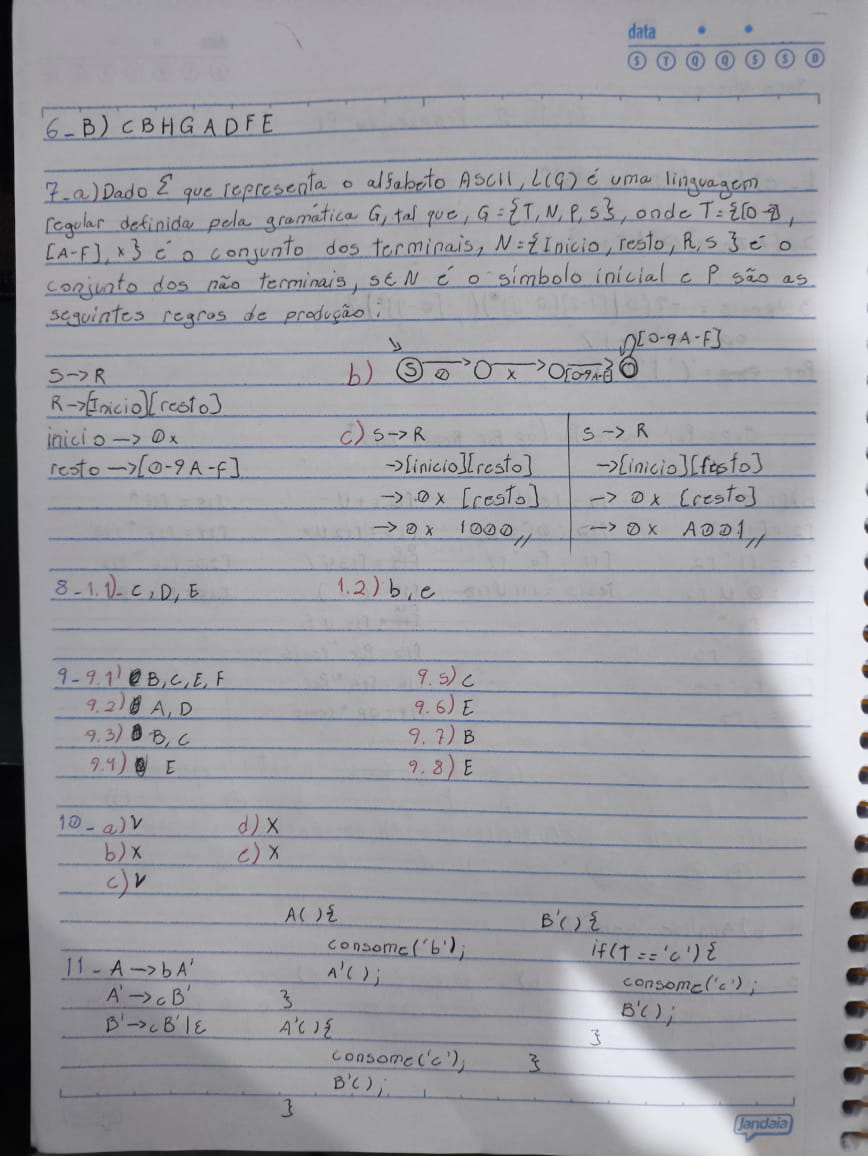 data
S T Q Q S S D
6- B) CBHGADFE
7- a) Dado Σ que representa o alfabeto ASCII, L(G) é uma linguagem
regular definida pela gramática G, tal que, G={T, N, P, S}, onde T={[0-9],
[A-F], x} é o conjunto dos terminais, N={Inicio, resto, R, S} é o
conjunto dos não terminais, S∈N é o símbolo inicial e P são as
seguintes regras de produção:
S→R
R→[Inicio][resto]
inicio → 0x
resto →[0-9A-F]
b) S 0 x [0-9A-F] [0-9A-F]
c) S→R
→[inicio][resto]
→ 0x [resto]
→ 0x 1000,,
S → R
→[inicio][resto]
→ 0x [resto]
→ 0x A001,,
8- 1.1)- C, D, E
1.2) b, e
9- 9.1) B, C, E, F
9.2) A, D
9.3) B, C
9.4) E
9.5) C
9.6) E
9.7) B
9.8) E
10- a) V
b) X
c) V
d) X
e) X
11- A→bA'
A'→cB'
B'→cB'|ε
A(){
consome('b');
A'();
}
A'(){
consome('c');
B'();
}
B'(){
if(T=='c'){
consome('c');
B'();
}
}
Jandaia